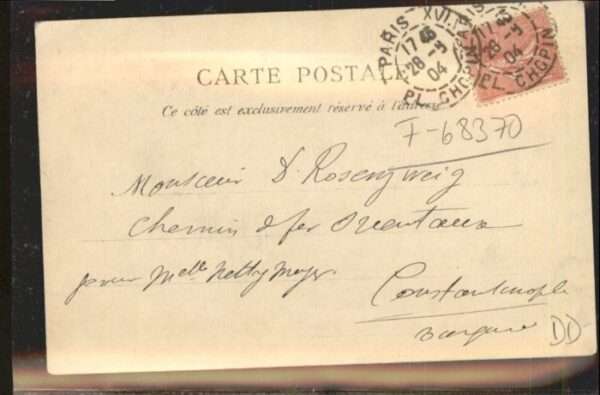 CARTE POSTALE
Ce côté est exclusivement réservé à l'adresse
PARIS XVI
17 45
28 -9
04
PL. CHOPIN
PARIS XVI
17 45
28 -9
04
PL. CHOPIN
F-68370
Monsieur D. Rosenzweig
Chemin d fer Orientaux
pour Melle Netty Mayer
Constantinople
DD-